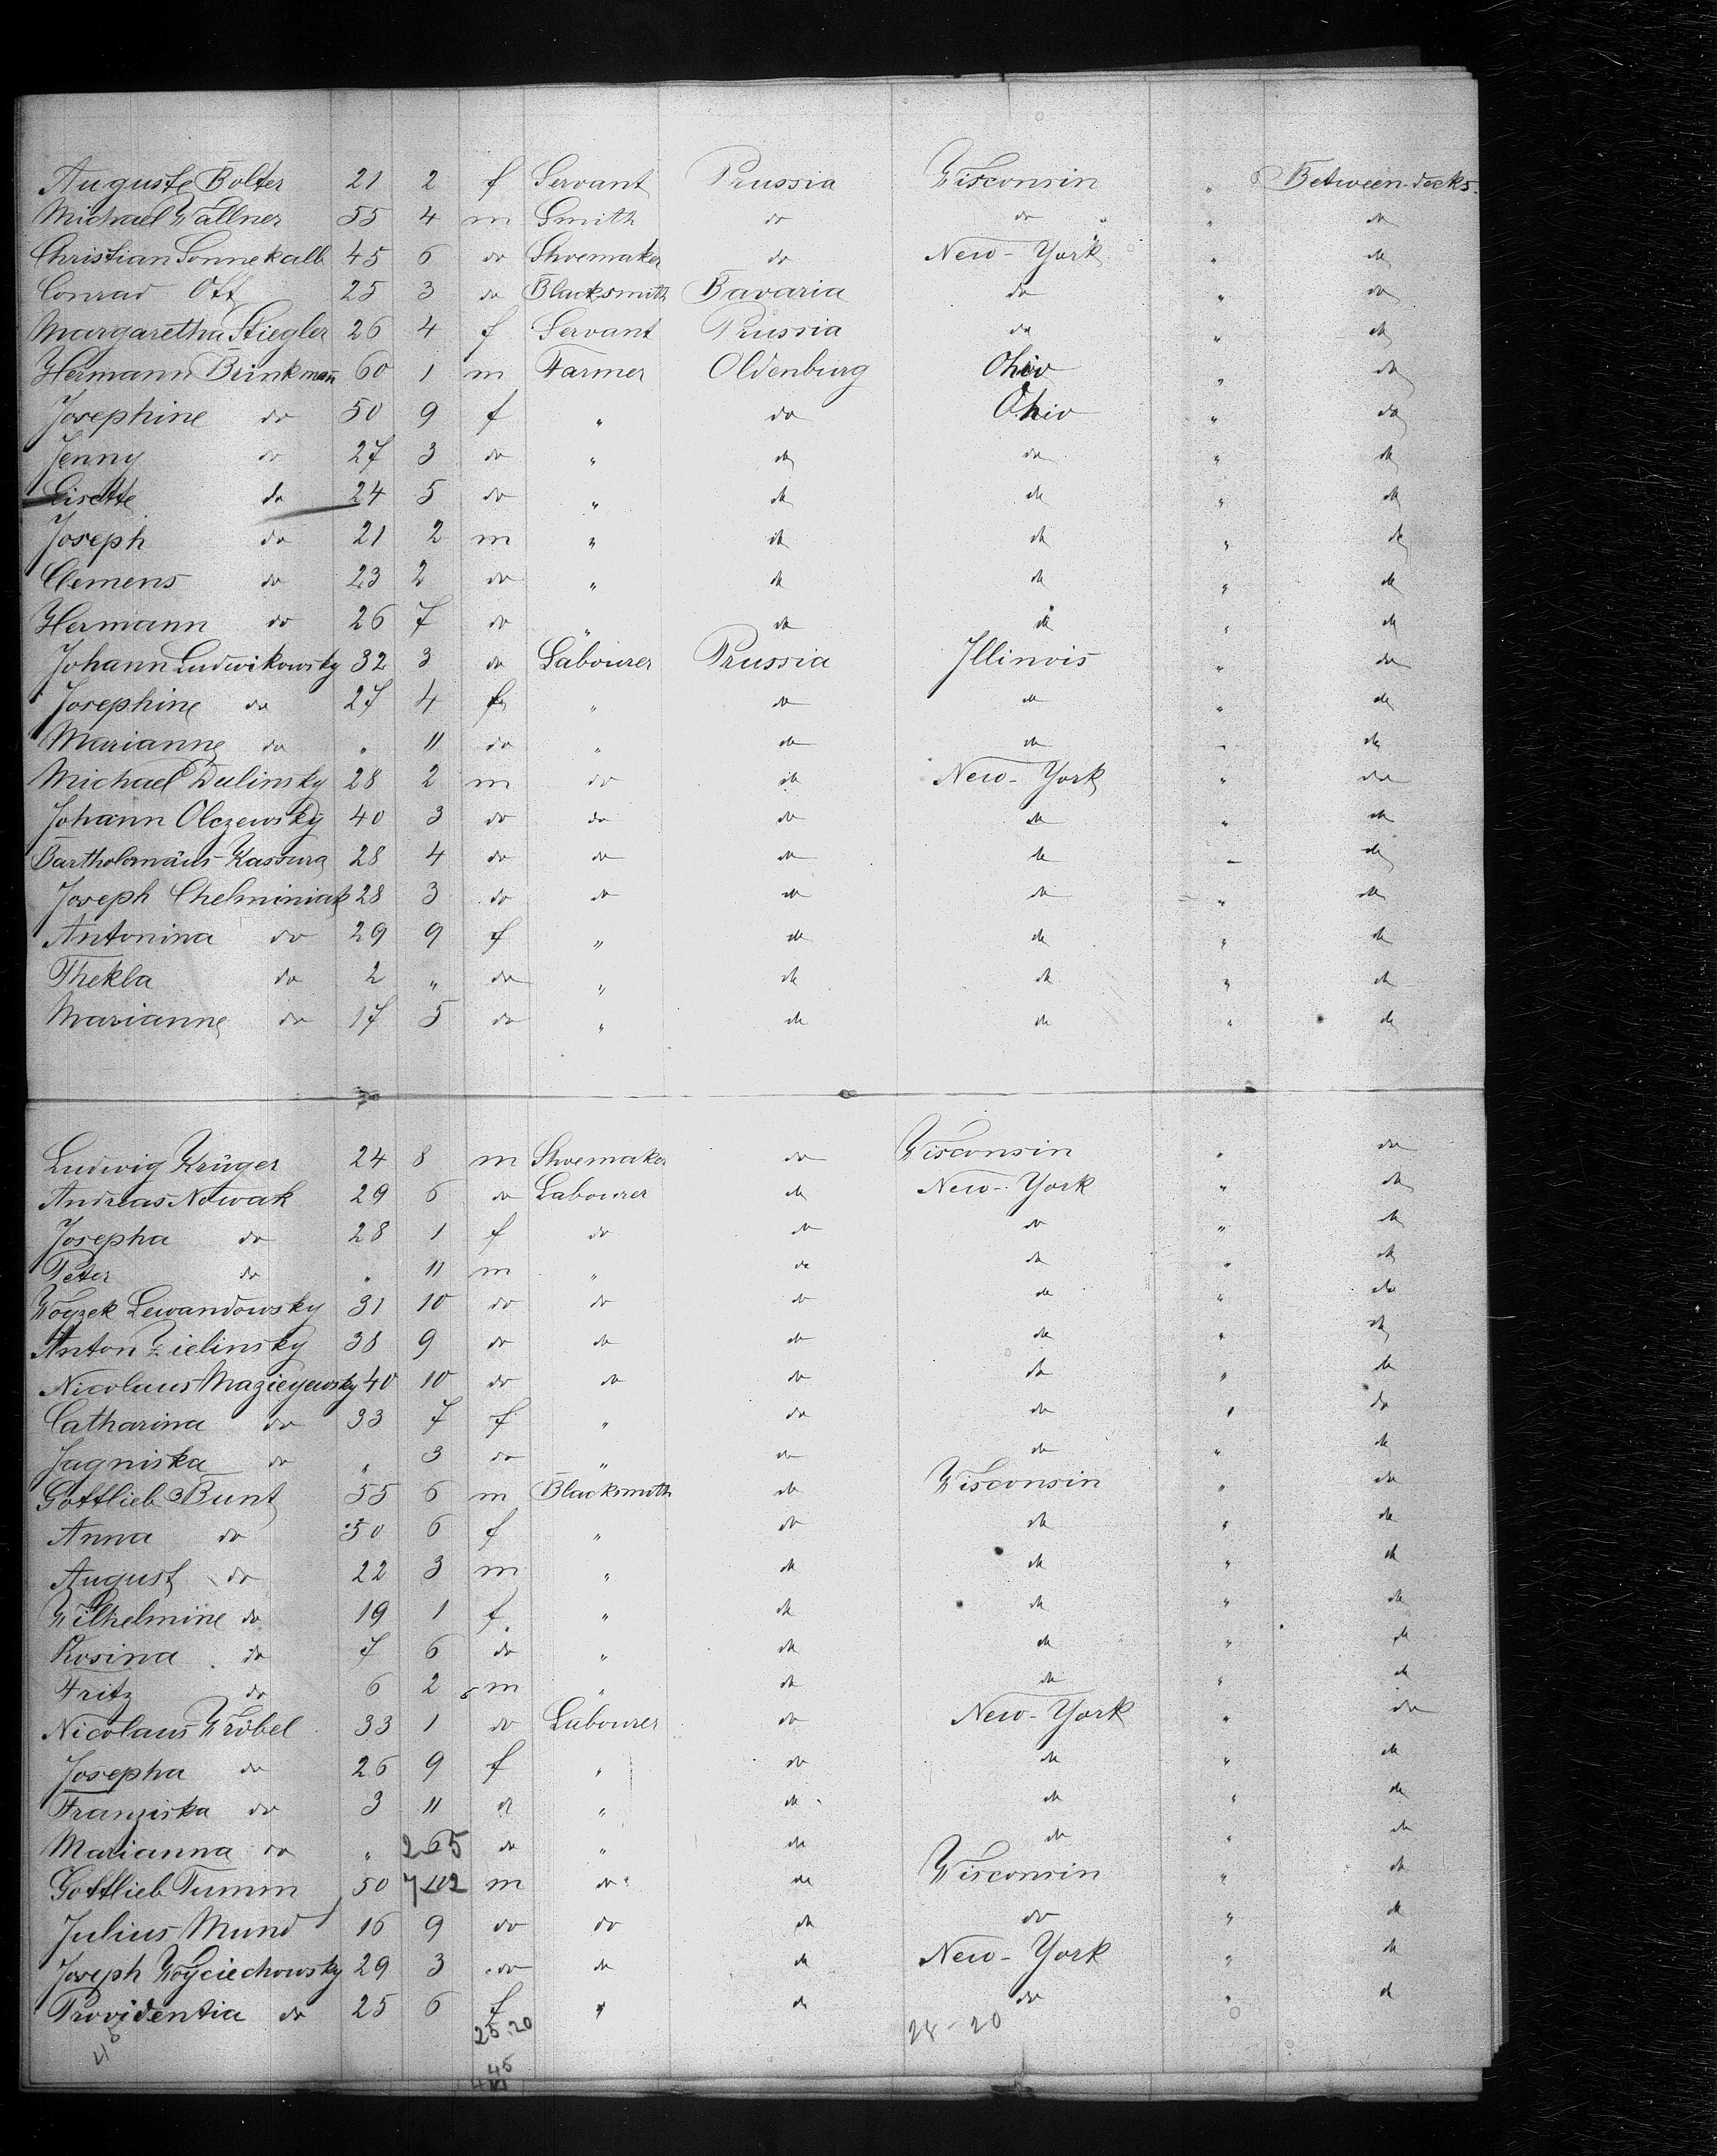 Auguste Bolter 21 2 f Servant Prussia Wisconsin " Between-decks.
Michael Wallner 55 4 m Smith do do " do
Christian Sonnekalb 45 6 do Shoemaker do New-York " do
Conrad Ott 25 3 do Blacksmith Bavaria do " do
Margaretha Stiegler 26 4 f Servant Prussia do " do
Hermann Brinkmann 60 1 m Farmer Oldenburg Ohio " do
Josephine do 50 9 f " do Ohio " do
Jenny do 27 3 do " do do " do
Lisette do 24 5 do " do do " do
Joseph do 21 2 m " do do " do
Clemens do 23 2 do " do do " do
Hermann do 26 7 do " do do " do
Johann Ludwikowsky 32 3 do Labourer Prussia Illinois " do
Josephine do 27 4 f " do do " do
Marianne do " 11 do " do do " do
Michael Dulinsky 28 2 m do do New-York " do
Johann Olczewsky 40 3 do do do do " do
Bartholomäus Kassura 28 4 do do do do " do
Joseph Chelminiak 28 3 do do do do " do
Antonina do 29 9 f " do do " do
Thekla do 2 " do " do do " do
Marianne do 17 5 do " do do " do
Ludwig Krüger 24 8 m Shoemaker do Wisconsin " do
Andreas Nowak 29 6 do Labourer do New-York " do
Josepha do 28 1 f do do do " do
Peter do " 11 m " do do " do
Woyzek Lewandowsky 31 10 do do do do " do
Anton Zielinsky 38 9 do do do do " do
Nicolaus Mazieyewsky 40 10 do do do do " do
Catharina do 33 7 f " do do " do
Jagniska do " 3 do " do do " do
Gottlieb Bunt 55 6 m Blacksmith do Wisconsin " do
Anna do 50 6 f " do do " do
August do 22 3 m " do do " do
Wilhelmine do 19 1 f " do do " do
Rosina do 7 6 do " do do " do
Fritz do 6 2 m " do do " do
Nicolaus Wröbel 33 1 do Labourer do New-York " do
Josepha do 26 9 f " do do " do
Franziska do 3 11 do " do do " do
Marianna do " 265 do " do do " do
Gottlieb Tumm 50 m do do Wisconsin " do
Julius Mund 16 9 do do do do " do
Joseph Woyciechowsky 29 3 do do do New-York " do
Providentia do 25 6 f " do do " do
25.20 24-20
45 45